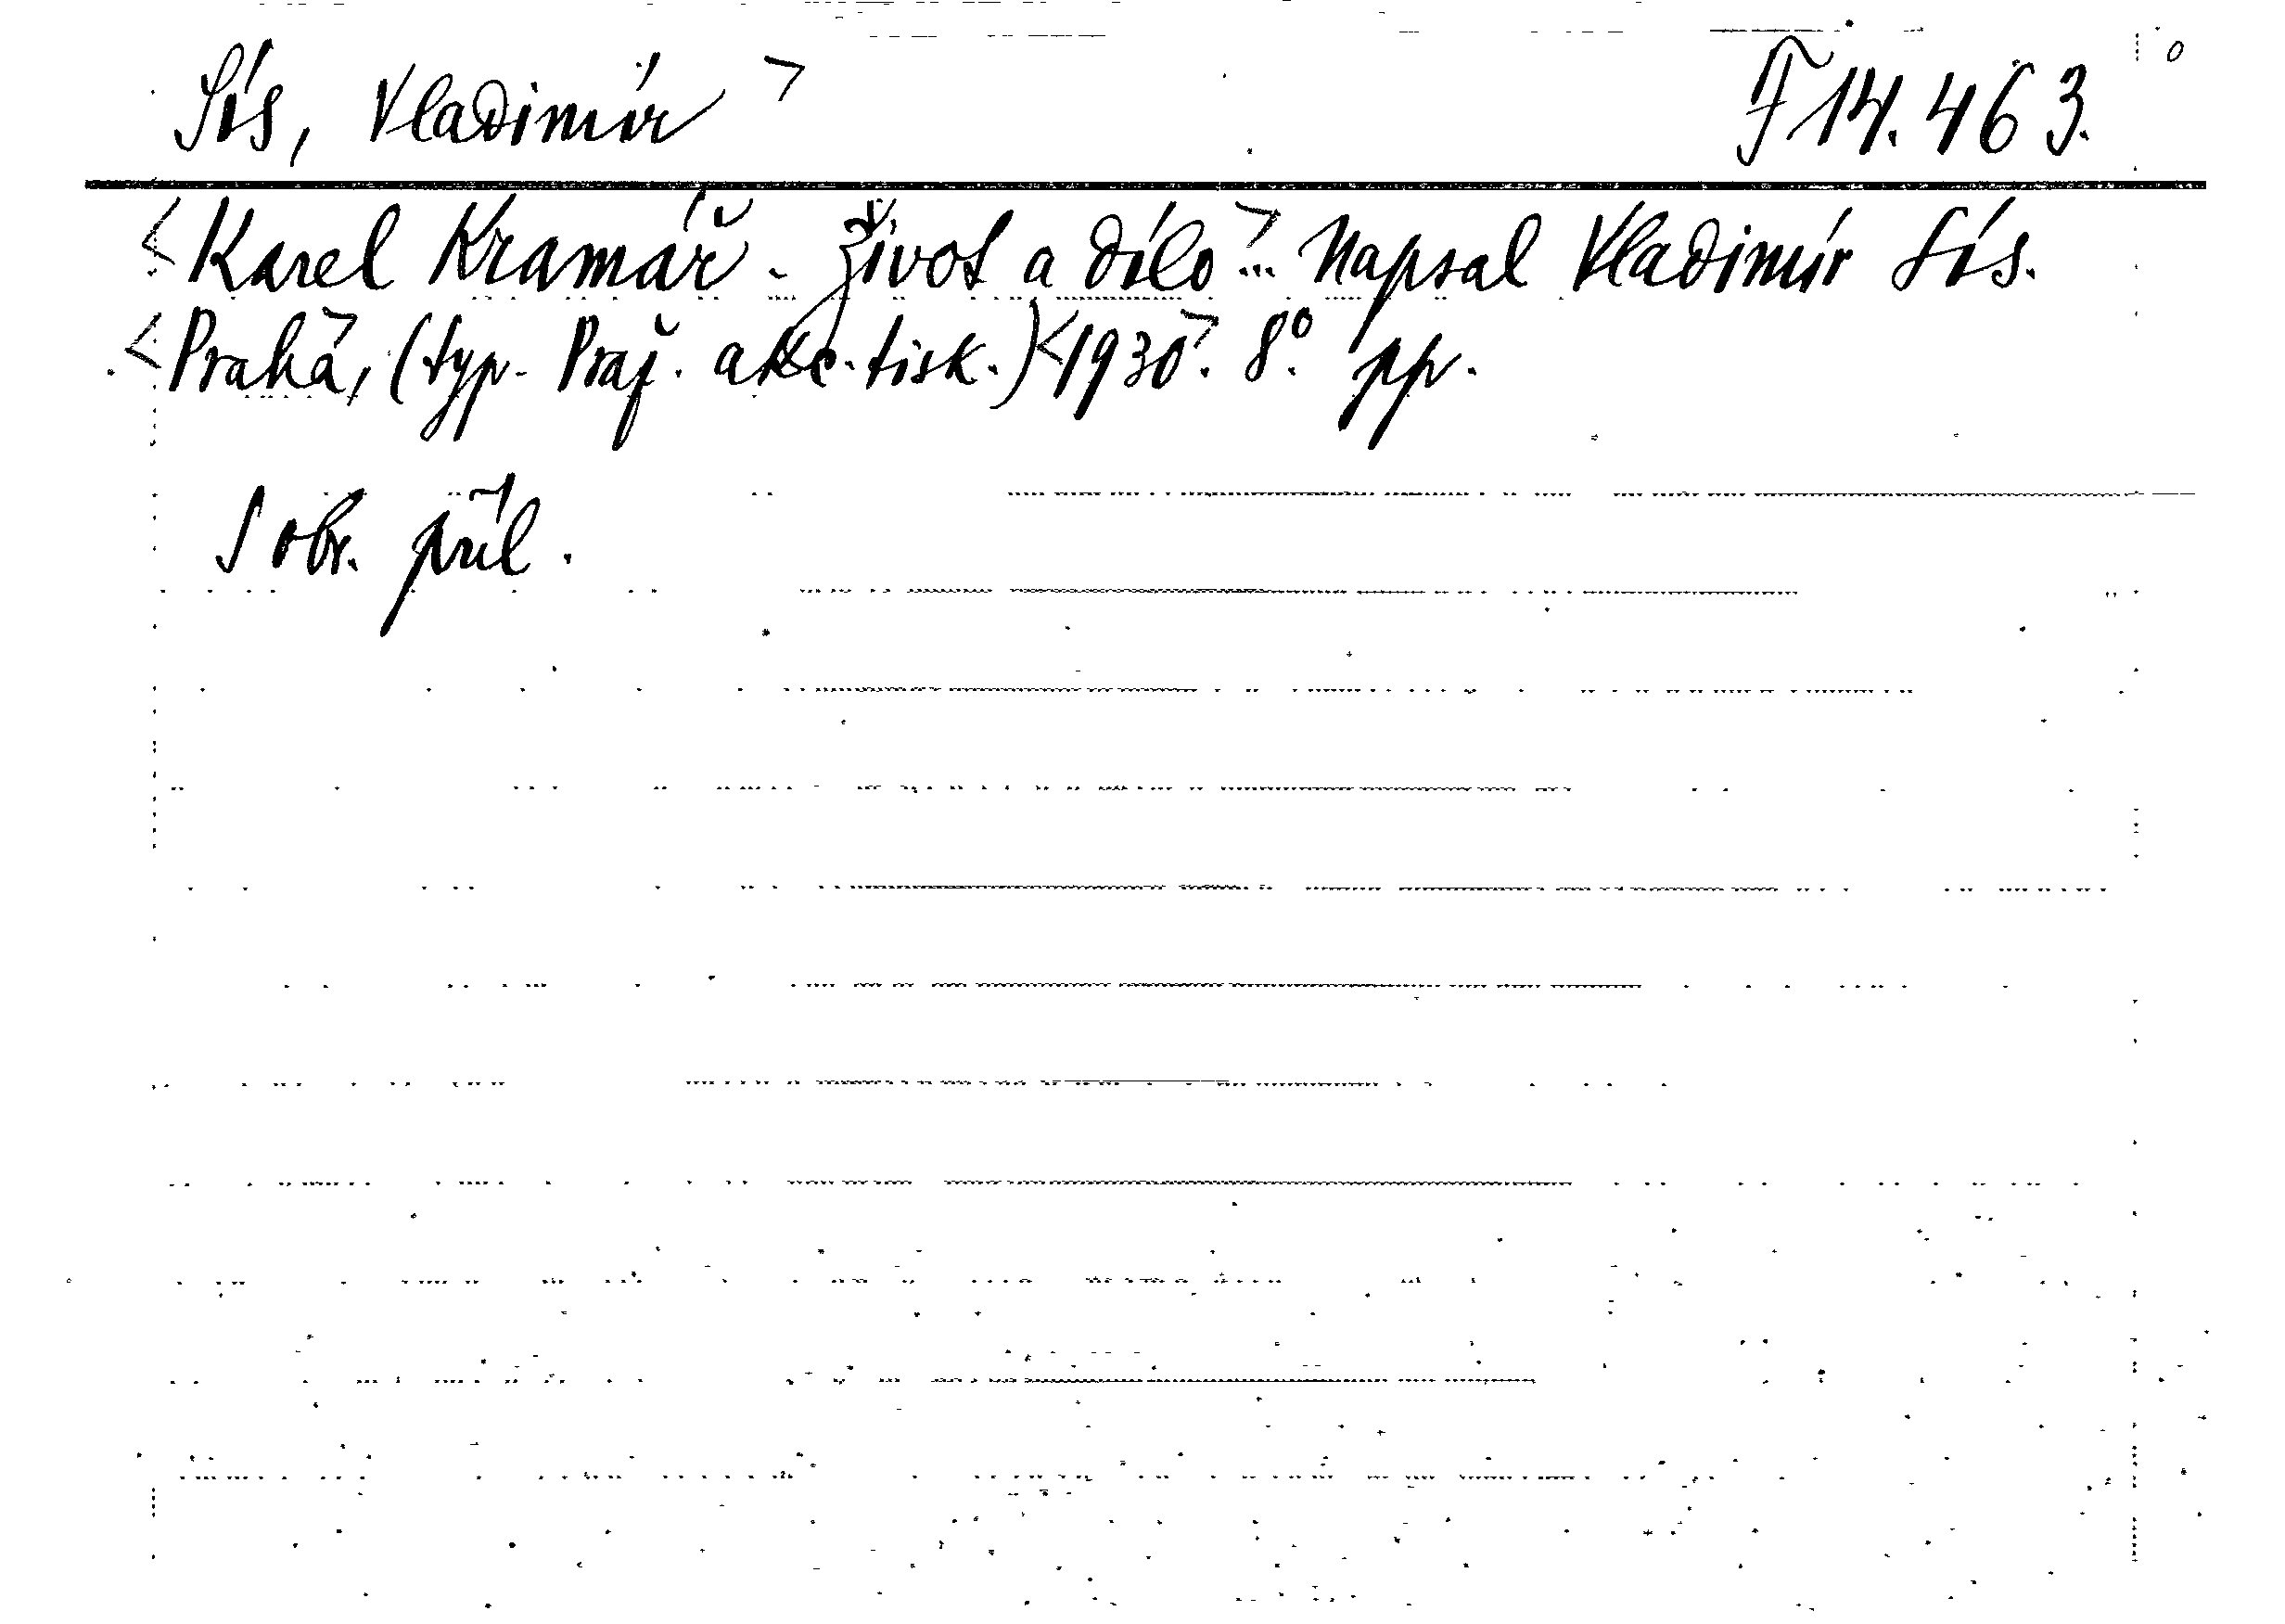 Sís, Vladimír > F 14.463.
<Karel Kramář - život a dílo>... Napsal Vladimír Sís.
<Praha>, (typ. Praž. akc. tisk.) <1930>. 8° pp.
S obr. příl.